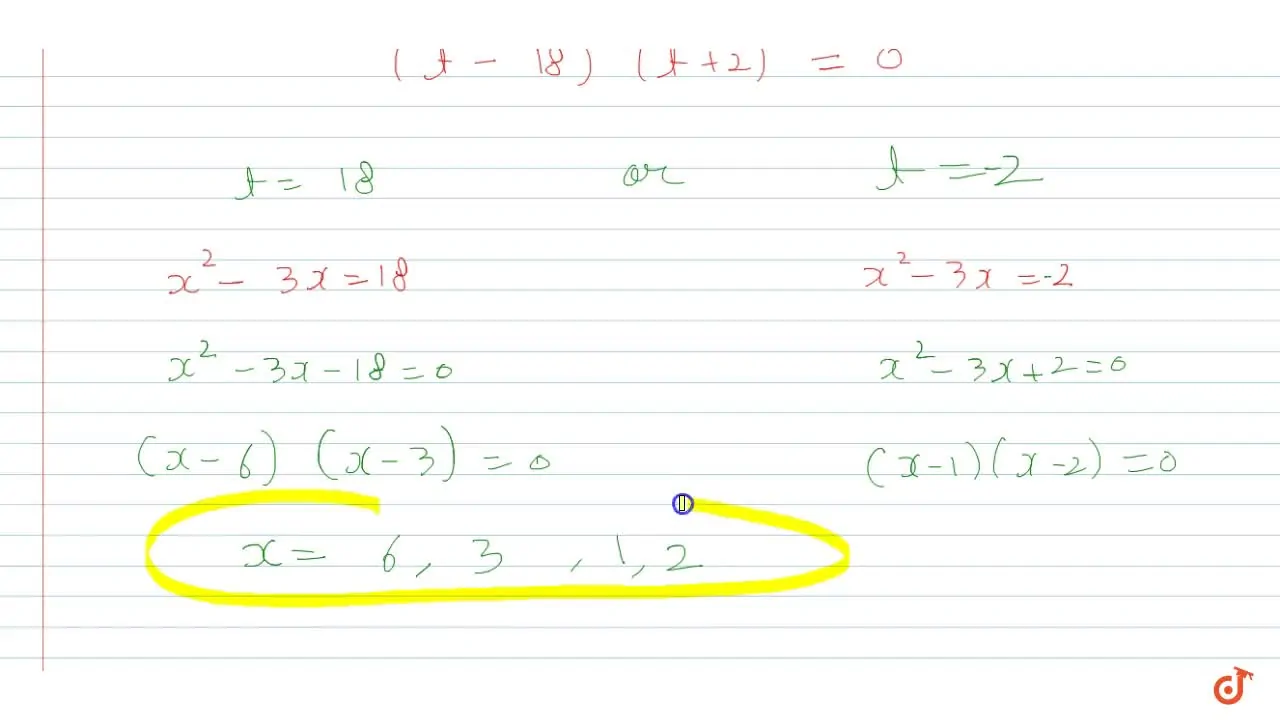 (t - 18) (t + 2) = 0
t = 18 or t = -2
x² - 3x = 18 x² - 3x = -2
x² - 3x - 18 = 0 x² - 3x + 2 = 0
(x - 6) (x - 3) = 0 (x - 1)(x - 2) = 0
x = 6, 3 , 1, 2